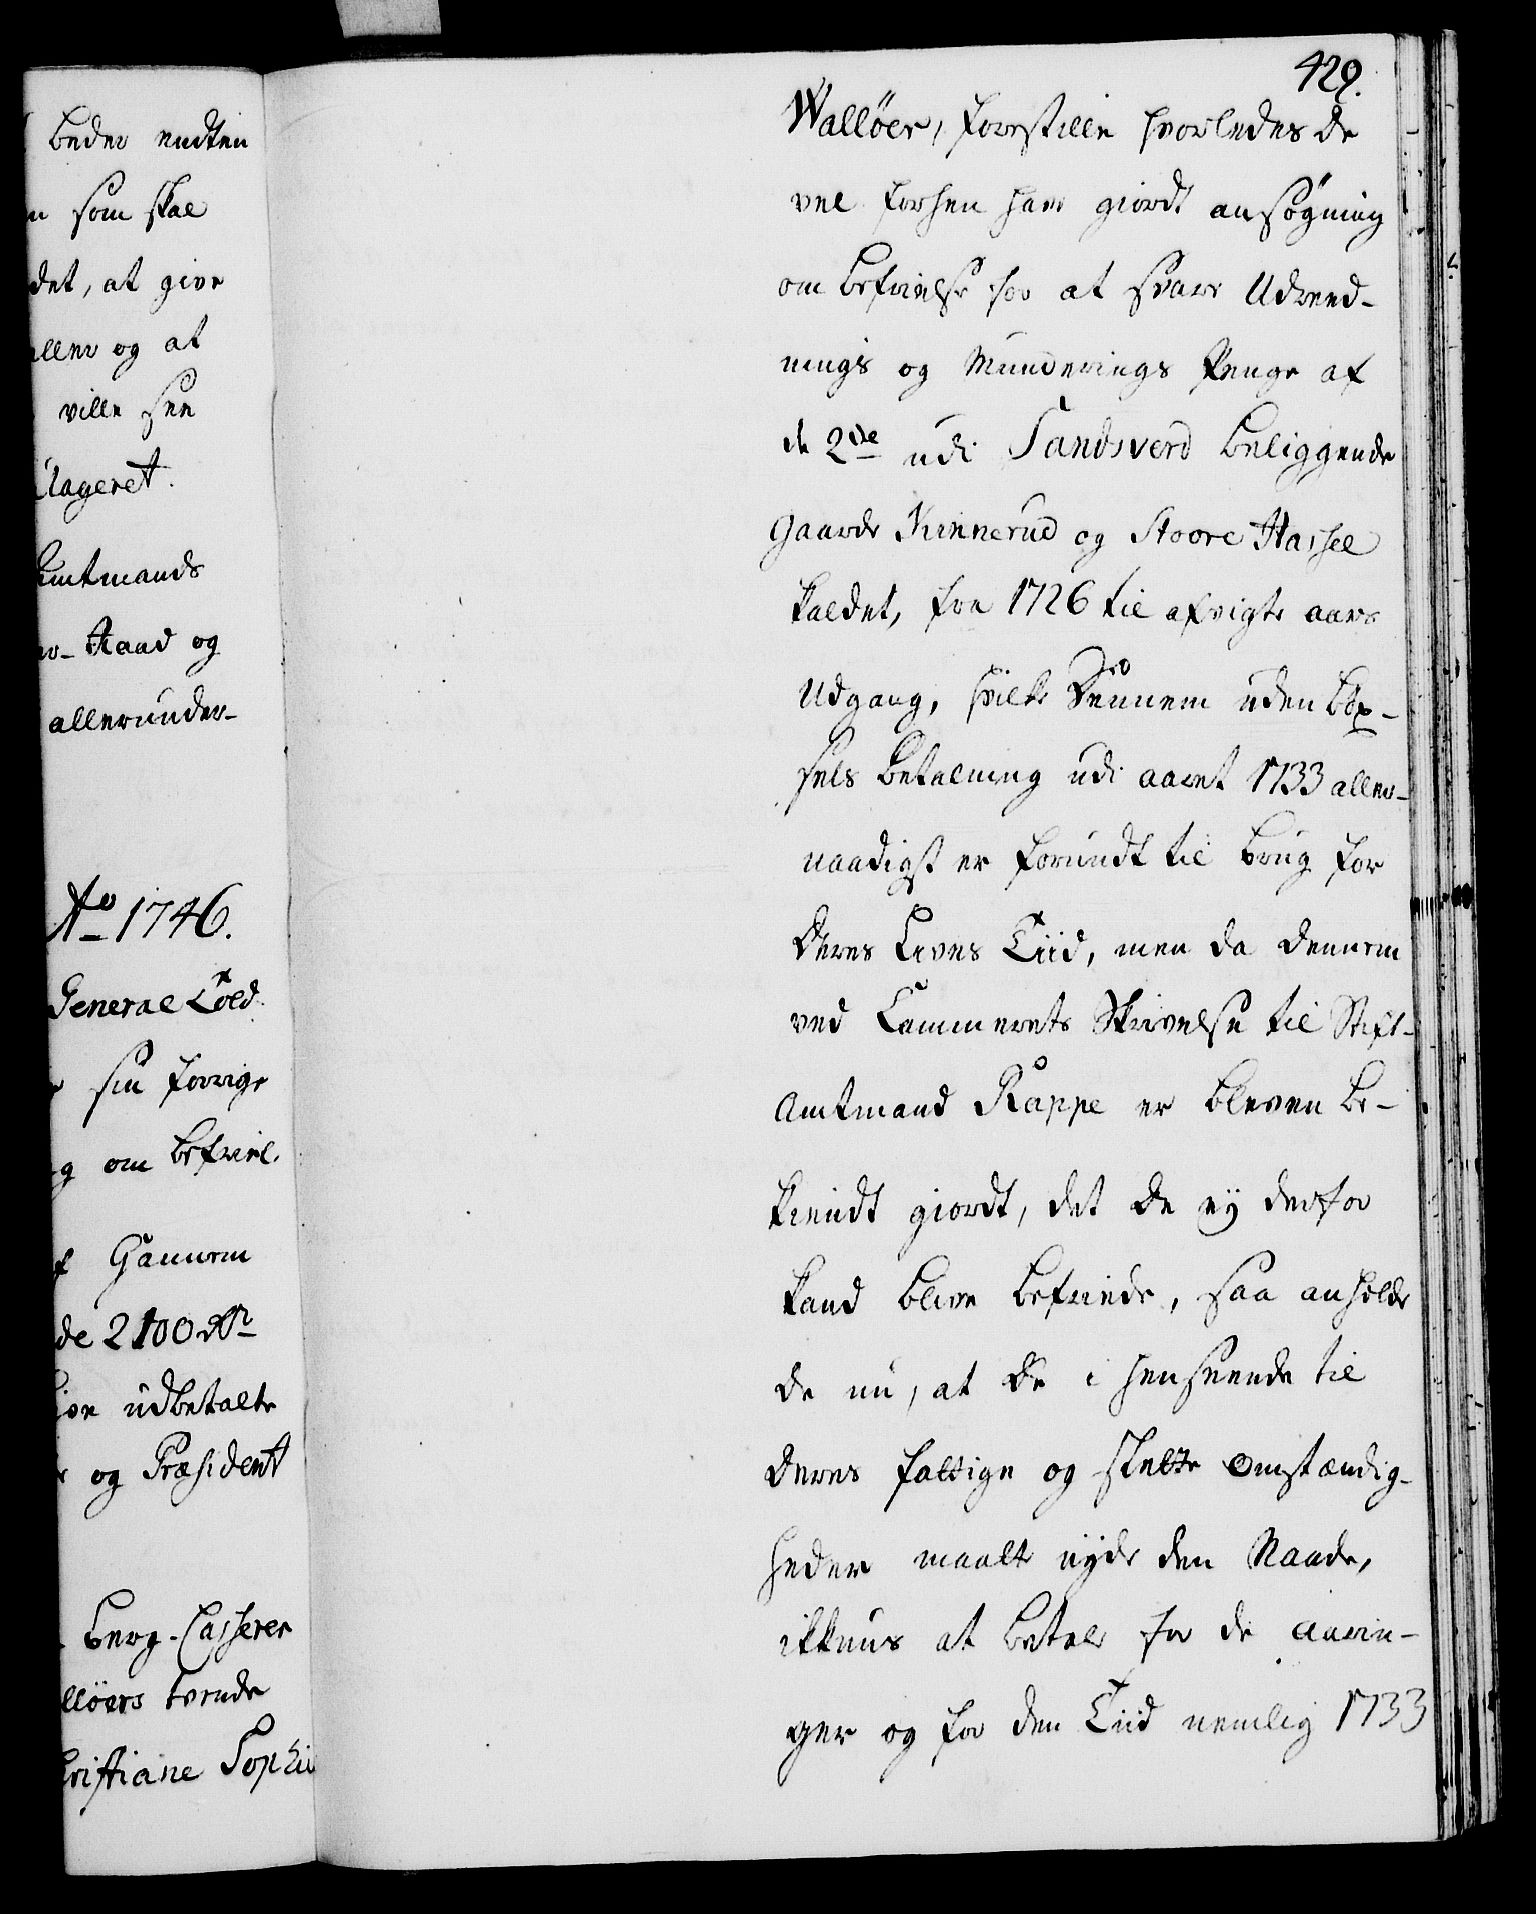 beder endten
som skal
det, at give
eller og at
ville see
Clageret.
Amtmands
Raad og
allerunder-
Ao 1746.
General Told
sin forrige
om befriel.
Gannem
de 2100 rdr
udbetalte
og Præsident
Berg-Casserer
llöers tvende
hristiane Sophie
429.
Wallöer, forestille hvorledes de
vel forhen have giordt ansøgning
om befrielse for at svare Udreed-
nings og Munderings Penge af
de 2de udi Sandsverd beliggende
Gaarde Kinnerud og Stoore Hassel
kaldet, fra 1726 til afvigte aars
Udgang, hvilke Dennem uden böx-
sels betalning udi aaret 1733 aller-
naadigst er forundt til brug for
deres Lives Tiid, men da dennem
ved Cammerets Skrivelse til Stift-
Amtmand Rappe er bleven be-
kiendt giordt, det de ey derfor
kand blive befriede, saa anholde
de nu, at de i henseende til
deres fattige og slette omstændig-
heder maatte nyde den Naade,
ikkuns at betale for de aarin-
ger og for den Tiid nemlig 1733